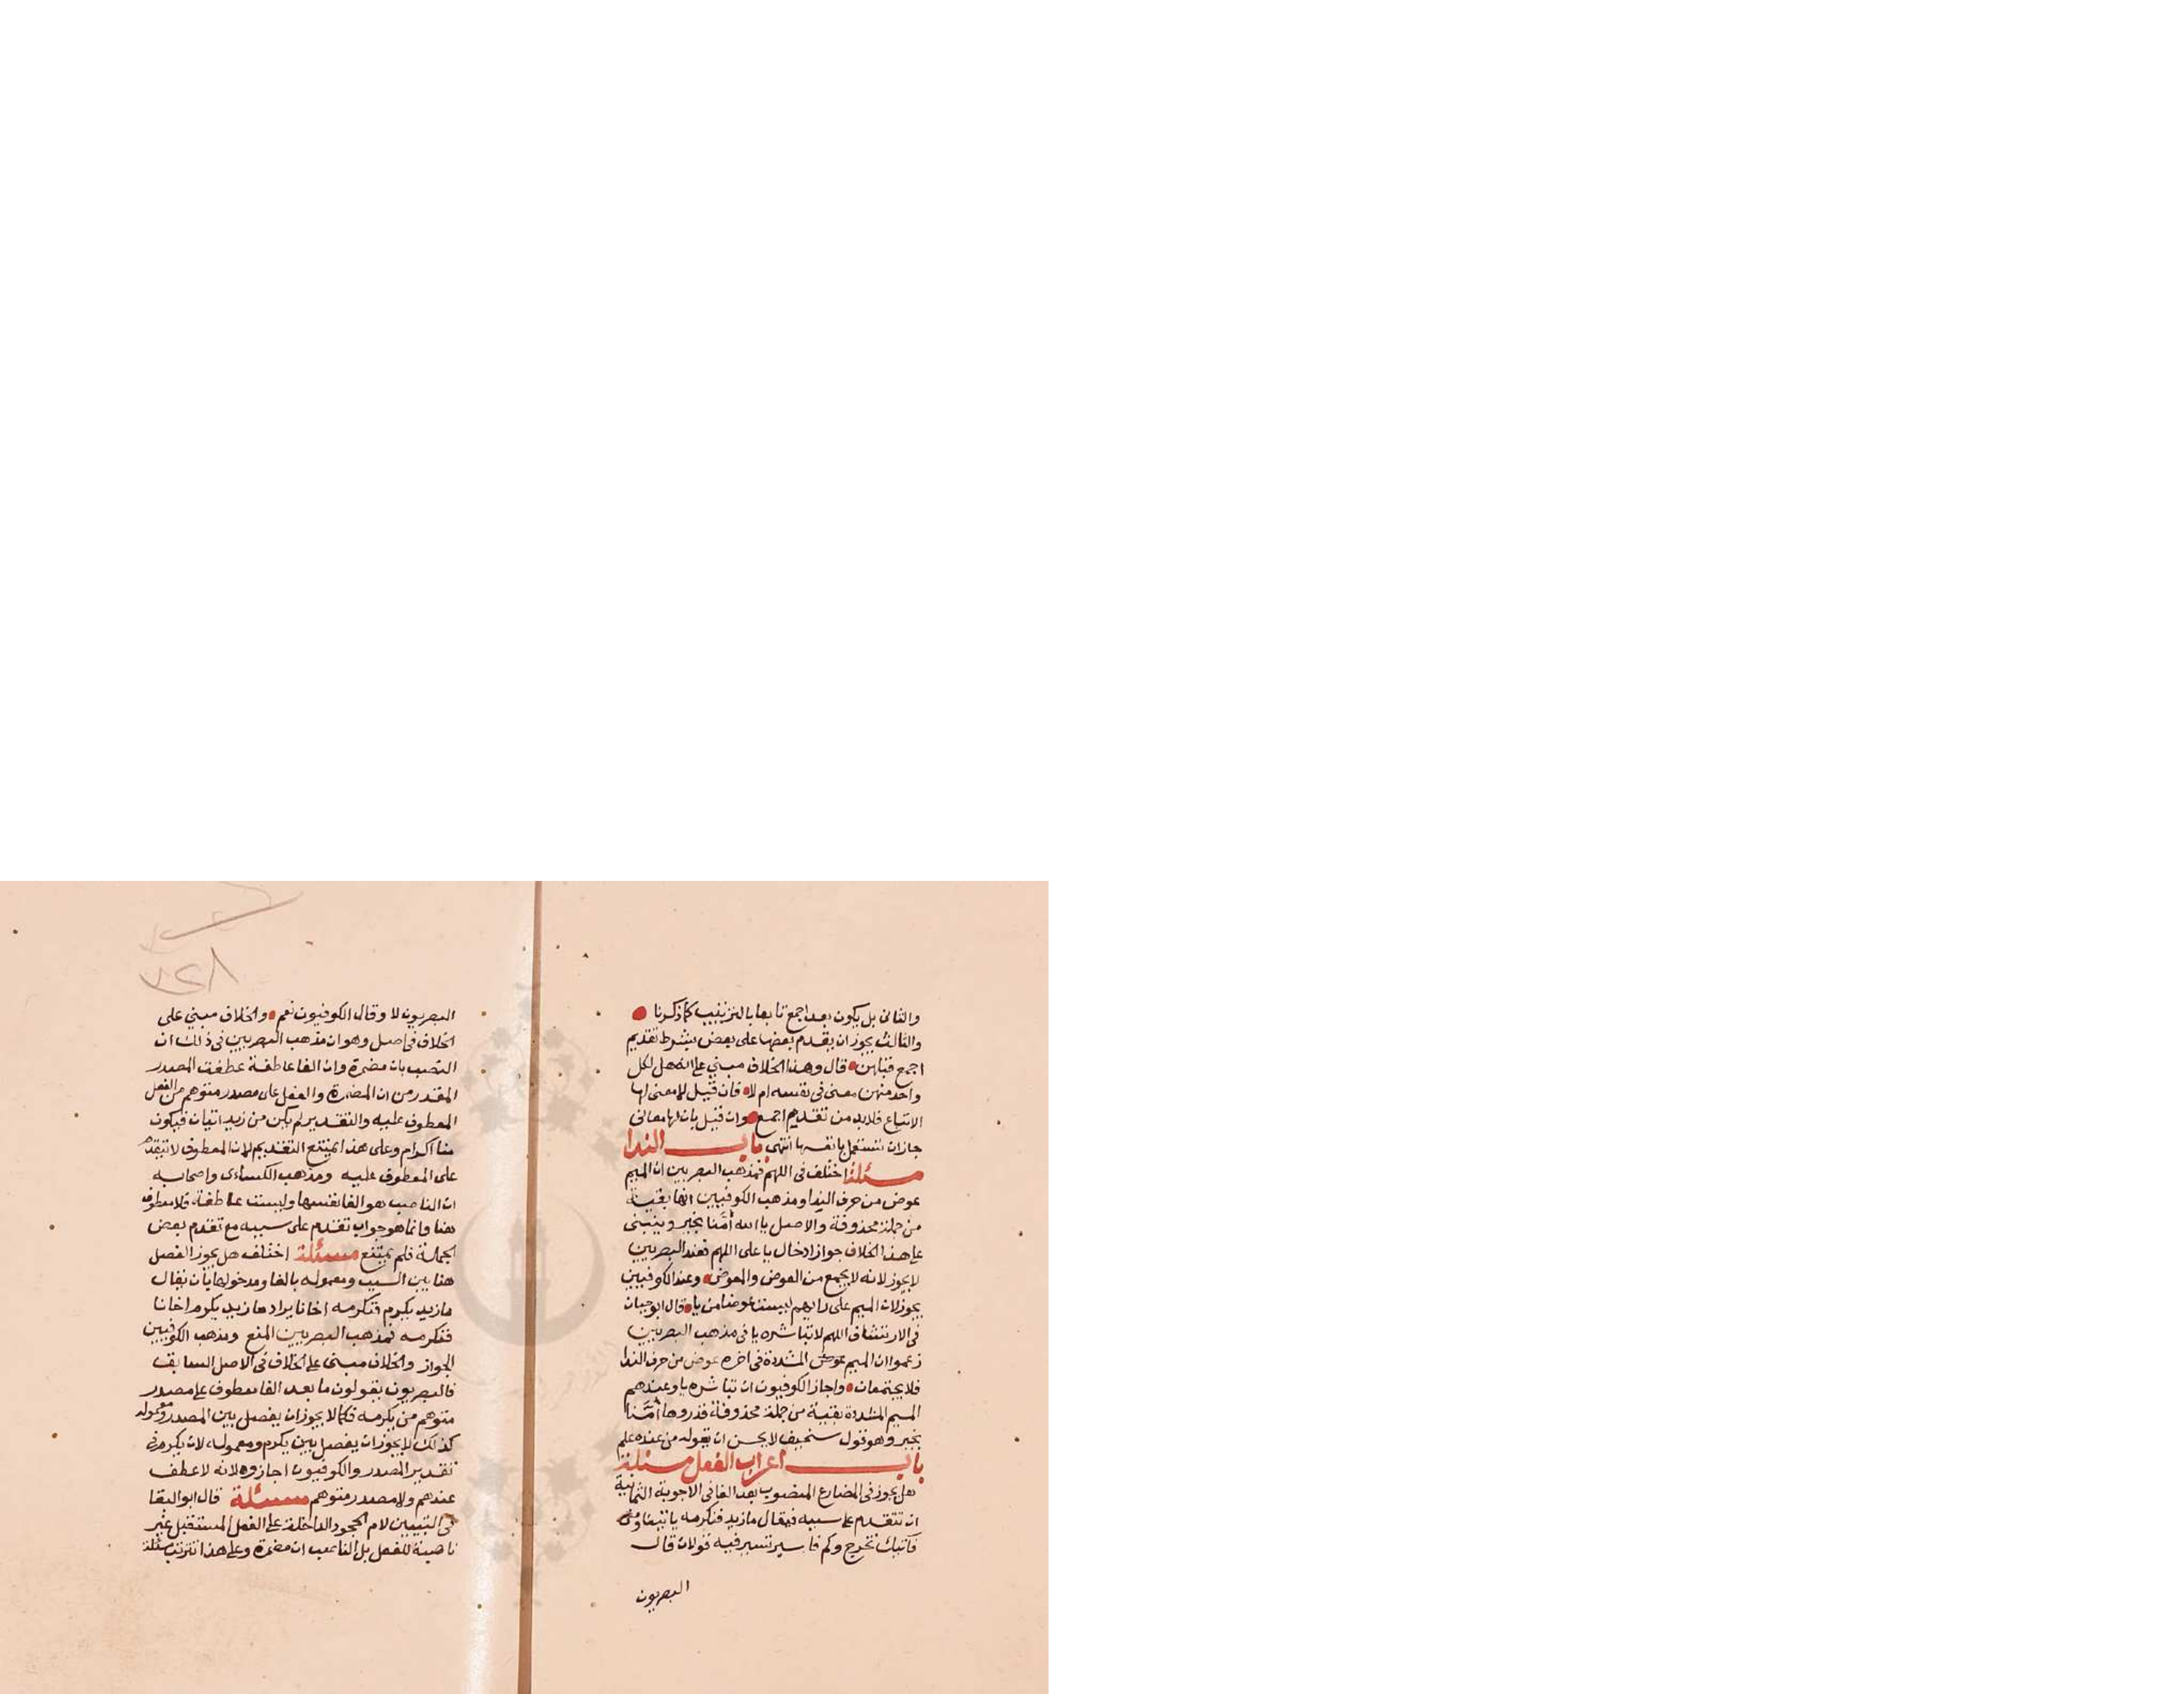 والثانى بل يكون بعد اجمع تابعا بالترتيب كما ذكرنا
والثالث يجوز ان يقدم بعضها على بعض بشرط تقديم
اجمع قبلهن قال وهذا الخلاف مبني على انه هل لكل
واحد منهن معنى فى نفسه ام لا فان قيل لا معنى لها الا
الاتباع فلابد من تقديم اجمع وان قيل بان لها معانى
جاز ان تستعمل بانفسها انتهى باب الندا
مسئلة اختلف فى اللهم فمذهب البصريين ان الميم
عوض من حرف الندا ومذهب الكوفيين انها بقية
من جملة محذوفة والاصل يا الله أمَّنا بخير وينبنى
على هذا الخلاف جواز ادخال يا على اللهم فعند البصريين
لا يجوز لانه لا يجمع من العوض والمعوض وعند الكوفيين
يجوز لان الميم على رايهم ليست عوضا من يا قال ابو حيان
فى الارتشاف اللهم لا تباشره يا فى مذهب البصريين
زعموا ان الميم عوض المشددة فى اخره عوض من حرف الندا
فلا يجتمعان واجاز الكوفيون ان تباشره يا وعندهم
الميم المشددة بقية من جملة محذوفة قدروها أمَّنا
بخير وهو قول سخيف لا يحسن ان يقوله من عنده علم
باب اعراب الفعل مسئلة
هل يجوز فى المضارع المنصوب بعد الفا فى الاجوبة الثمانية
ان تتقدم على سببه فيقال ما زيد فنكرمه ياتينا ومتى
فآتيك تخرج وكم فاسير تسير فيه قولان قال
البصريون
البصريون لا وقال الكوفيون نعم والخلاف مبني على
الخلاف فى اصل وهو ان مذهب البصريين فى ذلك ان
النصب بان مضمرة وان الفا عاطفة عطفت المصدر
المقدر من ان المضمرة والفعل على مصدر متوهم من الفعل
المعطوف عليه والتقدير لم يكن من زيد اتيان فيكون
منا اكرام وعلى هذا يمتنع التقديم لان المعطوف لا يتقدم
على المعطوف عليه ومذهب الكساءى واصحابه
ان الناصب هو الفا نفسها وليست عاطفة فلا معطوف
هنا وانما هو جواب تقدم على سببه مع تقدم بعض
الجملة فلم يمتنع مسئلة اختلف هل يجوز الفصل
هنا بين السبب ومعموله بالفا ومدخولها بان يقال
ما زيد يكرم فنكرمه اخانا يراد ما زيد يكرم اخانا
فنكرمه فمذهب البصريين المنع ومذهب الكوفيين
الجواز والخلاف مبنى على الخلاف فى الاصل السابق
فالبصريون يقولون ما بعد الفا معطوف على مصدر
متوهم من يكرمه فكما لا يجوز ان يفصل بين المصدر ومعموله
كذلك لا يجوز ان يفصل بين يكرم ومعموله لان يكرم فى
تقدير المصدر والكوفيون اجازوه لانه لا عطف
عندهم ولا مصدر متوهم مسئلة قال ابو البقا
فى التبيين لام الجحود الداخلة على الفعل المستقبل غير
ناصبة للفعل بل الناصب ان مضمرة وعلى هذا تترتب مسئلة